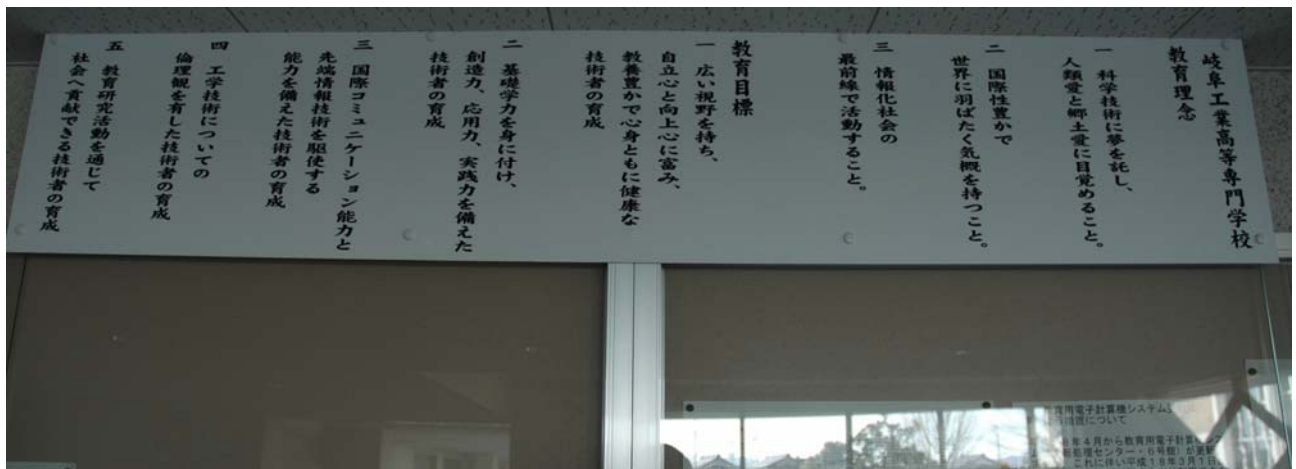 岐阜工業高等専門学校
教育理念
一 科学技術に夢を託し、
人類愛と郷土愛に目覚めること。
二 国際性豊かで
世界に羽ばたく気概を持つこと。
三 情報化社会の
最前線で活動すること。
教育目標
一 広い視野を持ち、
自立心と向上心に富み、
教養豊かで心身ともに健康な
技術者の育成
二 基礎学力を身に付け、
創造力、応用力、実践力を備えた
技術者の育成
三 国際コミュニケーション能力と
先端情報技術を駆使する
能力を備えた技術者の育成
四 工学技術についての
倫理観を有した技術者の育成
五 教育研究活動を通じて
社会へ貢献できる技術者の育成
育用電子計算機システム
措置について
年4月から教育用電子計算機シス
処理センター・6号館)が更新
これに伴い平成18年3月1日